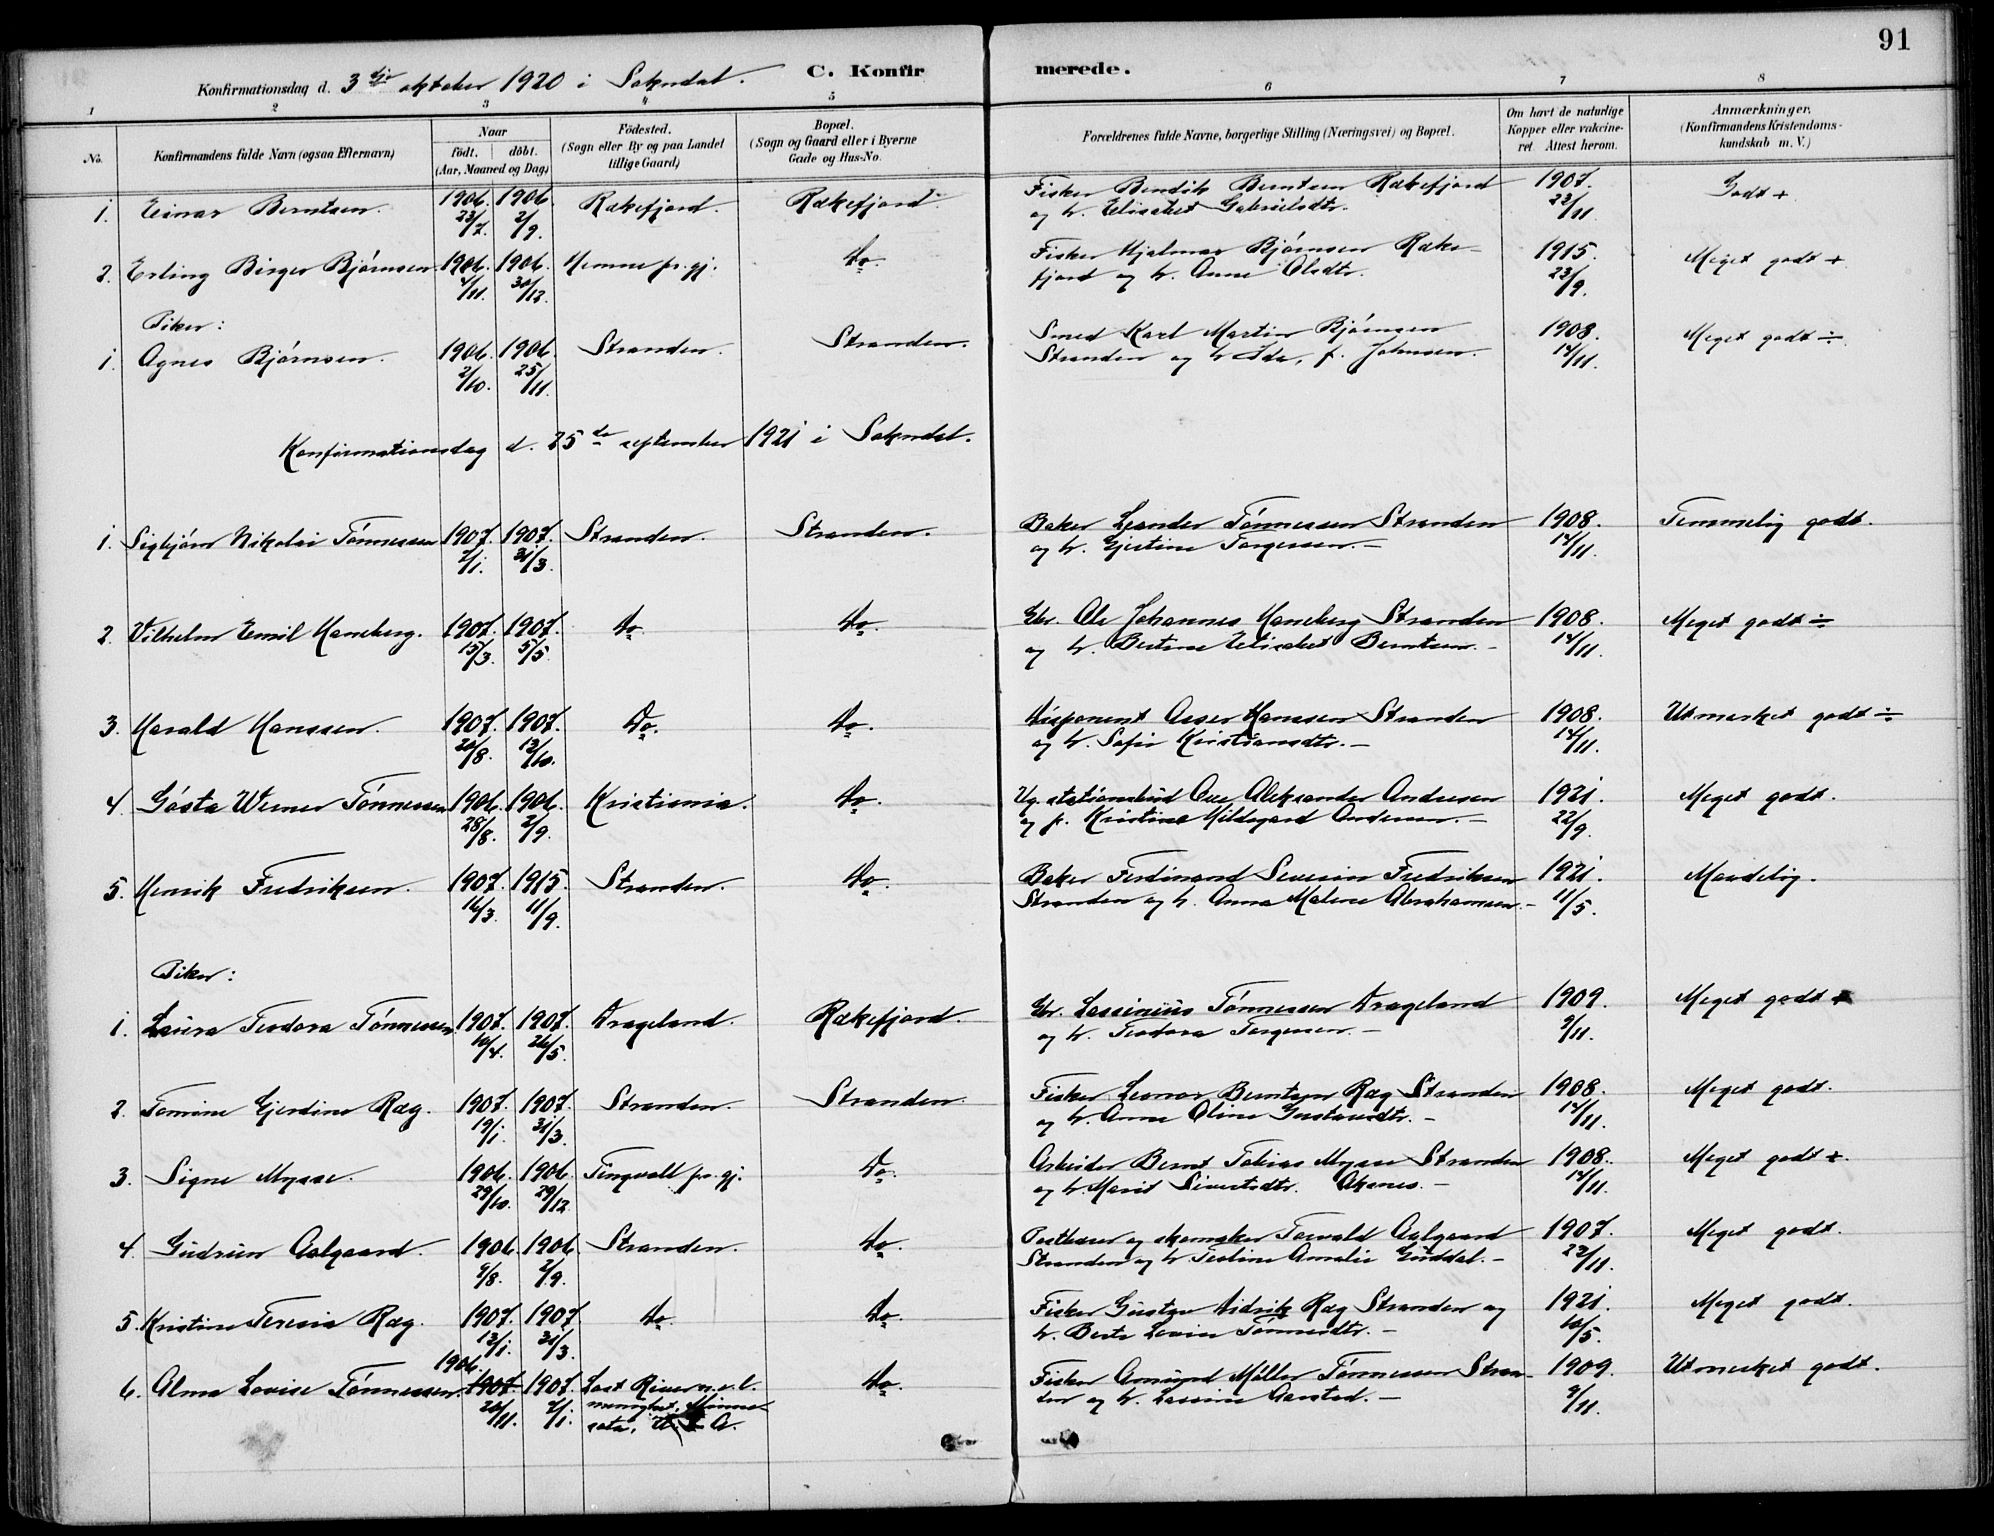 91
Konfirmationsdag d. 3die oktober 1920 i Sokndal. C. Konfirmerede.
1 2 3 4 5 6 7 8
No. Konfirmandens fulde Navn (ogsaa Efternavn) Naar födt. döbt. (Aar, Maaned og Dag) Födested. (Sogn eller By og paa Landet tillige Gaard) Bopæl. (Sogn og Gaard eller i Byerne Gade og Hus-No. Forældrenes fulde Navne, borgerlige Stilling (Næringsvei) og Bopæl. Om havt de naturlige Kopper eller vakcineret. Attest herom. Anmærkninger. (Konfirmandens Kristendomskundskab m. V.)
1. Einar Berntsen. 1906. 1906. Rækefjord. Rækefjord. Fisker Bendik Berntsen Rækefjord 1907. Godt +
23/7. 2/9. og h. Elisabet Gabrielsdtr. 22/11.
2. Erling Birger Bjørnsen 1906. 1906. Hemne pr.gj. Do. Fisker Hjalmar Bjørnsen Ræke- 1915. Meget godt +
4/11. 30/12. fjord og h. Anne Olsdtr. 23/9.
Piker:
1. Agnes Bjørnsen. 1906. 1906. Stranden. Stranden. Smed Karl Martin Bjørnsen 1908. Meget godt ÷
2/10. 25/11. Stranden og h. Ida, f. Johnsen. 14/11.
Konfirmationsdag d. 25de september 1921 i Sokndal.
1. Sigbjörn Nikolai Tönnessen 1907. 1907. Stranden. Stranden. Baker Leander Tönnessen Stranden 1908. Temmelig godt.
2/1. 31/3. og h. Gjertine Torgersen. — 14/11.
2. Vilhelm Emil Haneberg. 1907. 1907. Do. Do. Gbr. Ole Johannes Haneberg Stranden 1908. Meget godt ÷
15/3. 5/5. og h. Bertine Elisabet Berntsen. — 14/11.
3. Harald Hanssen. 1907. 1907. Do. Do. Disponent Asser Hanssen Stranden 1908. Utmerket godt ÷
20/8. 13/10. og h. Sofie Kristiansdtr. — 14/11.
4. Gösta Werner Tönnessen 1906. 1906. Kristiania. Do. Ug. stationsbud Ove Aleksander Andresen 1921. Meget godt.
28/8. 2/9. og p. Kristine Hildegard Andersen. — 22/9.
5. Henrik Fredriksen. 1907. 1915. Stranden. Do. Baker Ferdinand Severin Fredriksen 1921. Maadelig.
16/3. 11/9. Stranden og h. Anna Malene Abrahamsen. — 11/5.
Piker:
1. Laura Teodora Tönnessen 1907. 1907. Drageland. Rækefjord. Gbr. Lassinius Tönnessen Drageland 1909. Meget godt +
10/4. 26/5. og h. Teodora Torgersen. — 9/11.
2. Tomine Gjerdine Ræg. 1907. 1907. Stranden. Stranden. Fisker Leonar Berntsen Ræg Stranden 1908. Meget godt.
19/1. 31/3. og h. Anne Oline Gustavsdtr. — 14/11.
3. Signe Mysse. 1906. 1906. Tingvoll pr.gj. Do. Arbeider Bernt Tobias Mysse Stranden 1908. Meget godt +.
29/10. 29/12. og h. Marit Sivertsdtr. Akanes. — 14/11.
4. Gudrun Aalgaard. 1906. 1906. Stranden. Do. Postbærer og skomaker Torvald Aalgaard 1907. Meget godt.
9/8. 2/9. Stranden og h. Teoline Amalie Guddal. — 22/11.
5. Kristine Teresie Ræg. 1907. 1907. Do. Do. Fisker Gustav Didrik Ræg Stranden og 1921. Meget godt.
12/1. 31/3. h. Berte Lovise Tönnesdtr. — 10/5.
1906.
6. Alma Lovise Tönnessen. 1907. 1907. Lost River n. e. l. Do. Fisker Amund Möller Tönnessen Stran- 1909. Utmerket godt.
20/11. 2/1. menighet, Minne- den og h. Lassine Aarstad. — 9/11.
sota, U. S. A.